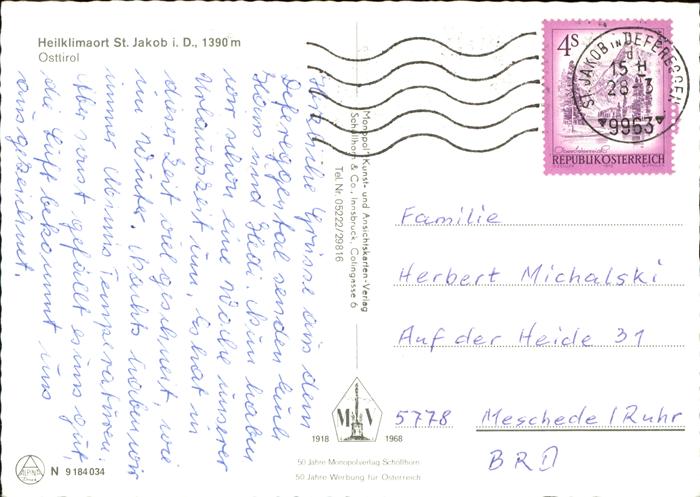 Heilklimaort St. Jakob i. D., 1390 m
Osttirol
Herzliche Grüsse aus dem
Defereggental senden Euch
Hans und Hedi. Nun haben
wir schon eine Woche unserer
Urlaubszeit um. Es hat in
dieser Zeit viel geschneit, wie
im Winter. Nachts haben wir
immer Minus Temperaturen.
Aber sonst gefällt es uns gut,
die Luft bekommt uns
ausgezeichnet.
"Monopol" Kunst- und Ansichtskarten-Verlag
Schöllhorn & Co., Innsbruck, Colingasse 6
Tel. Nr. 05222/29816
4S
REPUBLIK ÖSTERREICH
ST. JAKOB in DEFEREGGEN
15 H
28
3
9963
Familie
Herbert Michalski
Auf der Heide 31
5778 Meschede / Ruhr
BRD
M V
1918 1968
50 Jahre Monopolverlag Schöllhorn
50 Jahre Werbung für Österreich
ALPINA
Druck
N 9 184 034